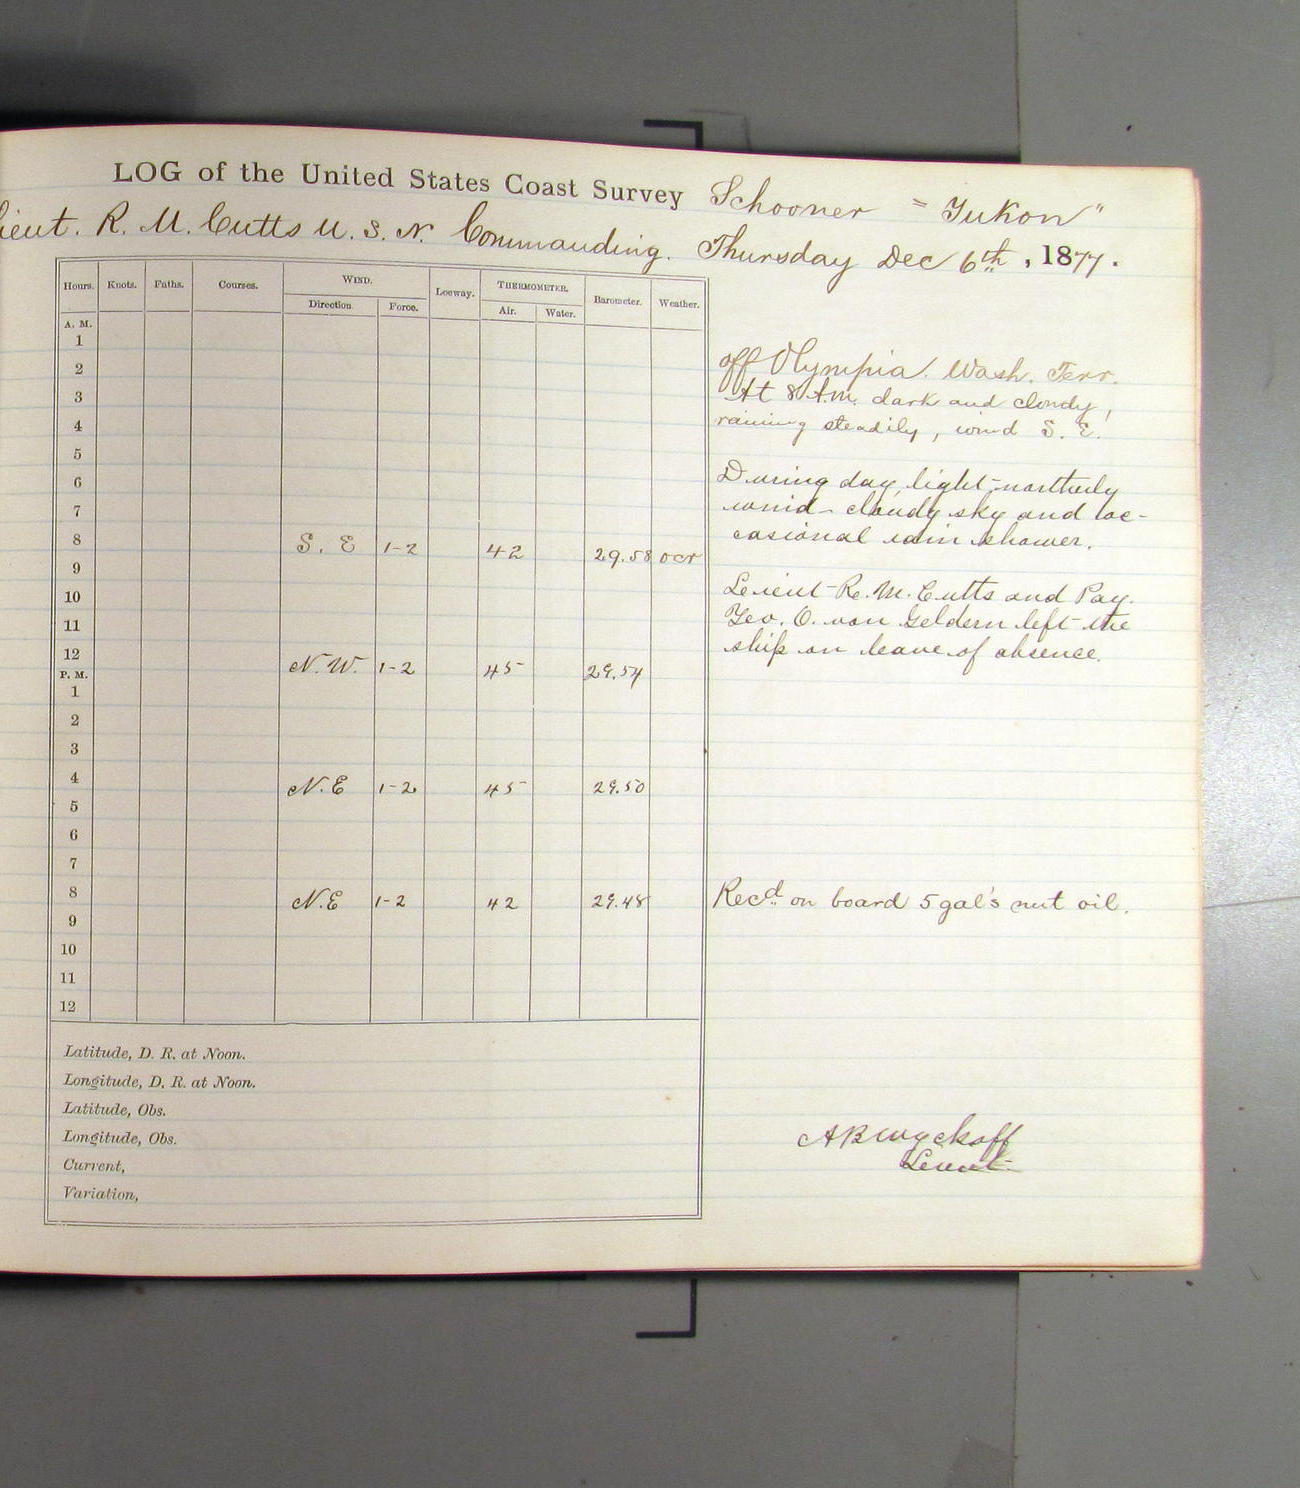 LOG of the United States Coast Survey Schooner "Yukon"
Lieut. R. M. Cutts U. S. N. Commanding. Thursday Dec 6th, 1877.
Hours. Knots. Faths. Courses. WIND. Leeway. THERMOMETER. Barometer. Weather.
Direction. Force. Air. Water.
A. M.
1
2
3
4
5
6
7
8 S. E 1-2 42 29.58 ocr
9
10
11
12 N. W. 1-2 45 29.54
P. M.
1
2
3
4 N. E 1-2 45 29.50
5
6
7
8 N. E 1-2 42 29.48
9
10
11
12
Latitude, D. R. at Noon.
Longitude, D. R. at Noon.
Latitude, Obs.
Longitude, Obs.
Current,
Variation,
off Olympia. Wash. Terr.
At 8 A.m. dark and cloudy,
raining steadily, wind S. E.
During day light northerly
wind - cloudy sky and oc-
casional rain shower.
Lieut R. M. Cutts and Pay.
Geo. O. von Geldern left the
ship on leave of absence.
Recd. on board 5 gal's nut oil.
A B Wyckoff
Lieut